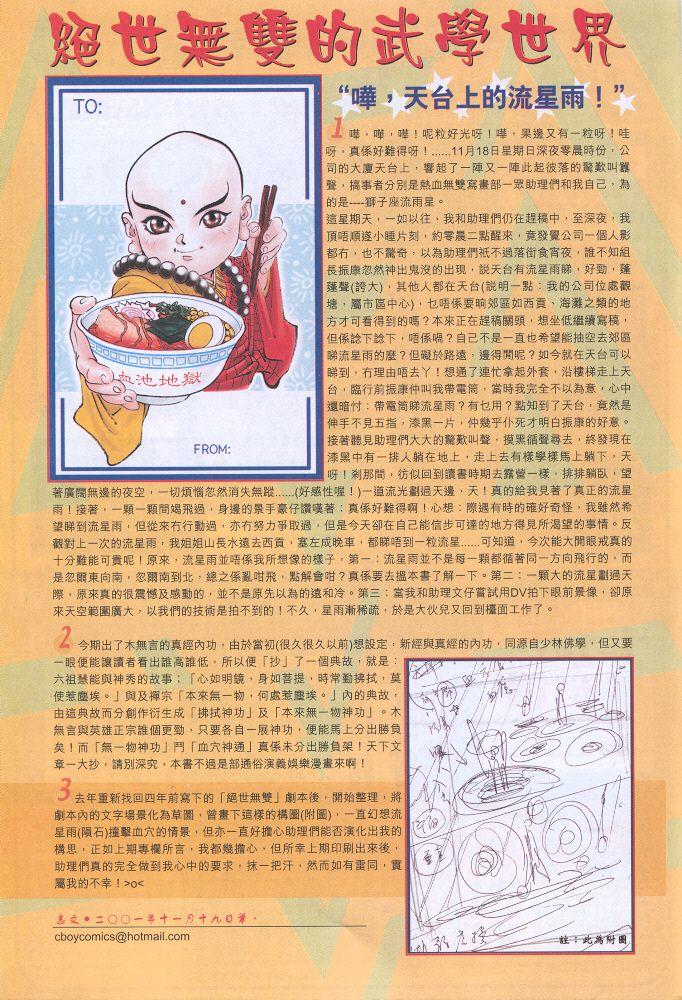 絕世無雙的武學世界
TO:
血池地獄
FROM:
“嘩，天台上的流星雨！”
1 嘩，嘩，嘩！呢粒好光呀！嘩，果邊又有一粒呀！哇
呀，真係好難得呀！......11月18日星期日深夜零晨時份，公
司的大廈天台上，響起了一陣又一陣此起彼落的驚歎叫囂
聲，搞事者分別是熱血無雙寫畫部一眾助理們和我自己，為
的是----獅子座流雨星。
這星期天，一如以往，我和助理們仍在趕稿中，至深夜，我
頂唔順遂小睡片刻，約零晨二點醒來，竟發覺公司一個人影
都冇，也不驚奇，以為助理們祇不過落街食宵夜，誰不知組
長振康忽然神出鬼沒的出現，説天台有流星雨睇，好勁，蓬
蓬聲(誇大)，其他人都在天台(説明一點：我的公司位處觀
塘，屬市區中心)，乜唔係要晌郊區如西貢、海灘之類的地
方才可看得到的嗎？本來正在趕稿關頭，想坐低繼續寫稿，
但係諗下諗下，唔係喎？自己不是一直也希望能抽空去郊區
睇流星雨的麼？但礙於路遠，邊得閒呢？如今就在天台可以
睇到，冇理由唔去丫！想通了連忙拿起外套，沿樓梯走上天
台，臨行前振康仲叫我帶電筒，當時我完全不以為意，心中
還暗忖：帶電筒睇流星雨？有乜用？點知到了天台，竟然是
伸手不見五指，漆黑一片，仲幾乎仆死才明白振康的好意。
接著聽見助理們大大的驚歎叫聲，摸黑循聲尋去，終發現在
漆黑中有一排人躺在地上，走上去有樣學樣馬上躺下，天
呀！剎那間，彷似回到讀書時期去露營一樣，排排躺臥，望
著廣闊無邊的夜空，一切煩惱忽然消失無蹤......(好感性喔！)一道流光劃過天邊，天！真的給我見著了真正的流星
雨！接著，一顆一顆間竭飛過，身邊的景手豪仔讚嘆著：真係好難得啊！心想：際遇有時的確好奇怪，我雖然希
望睇到流星雨，但從來冇行動過，亦冇努力爭取過，但是今天卻在自己能信步可達的地方得見所渴望的事情。反
觀對上一次的流星雨，我姐姐山長水遠去西貢，塞左成晚車，都睇唔到一粒流星......可知道，今次能大開眼戒真的
十分難能可貴呢！原來，流星雨並唔係我所想像的樣子，第一：流星雨並不是每一顆都循著同一方向飛行的，而
是忽爾東向南，忽爾南到北，總之係亂咁飛，點解會咁？真係要去搵本書了解一下。第二：一顆大的流星劃過天
際，原來真的很震憾及感動的，並不是原先以為的遠和冷。第三：當我和助理文仔嘗試用DV拍下眼前景像，卻原
來天空範圍廣大，以我們的技術是拍不到的！不久，星雨漸稀疏，於是大伙兒又回到檯面工作了。
2 今期出了木無言的真經內功，由於當初(很久很久以前)想設定，新經與真經的內功，同源自少林佛學，但又要
一眼便能讓讀者看出誰高誰低，所以便「抄」了一個典故，就是：
六祖慧能與神秀的故事；「心如明鏡，身如菩提，時常勤拂拭，莫
使惹塵埃。」與及禪宗「本來無一物，何處惹塵埃。」內的典故，
由這典故而分創作衍生成「拂拭神功」及「本來無一物神功」。木
無言與英雄正宗誰個更勁，只要各自一展神功，便能馬上分出勝負
矣！而「無一物神功」鬥「血穴神通」真係未分出勝負架！天下文
章一大抄，請別深究，本書不過是部通俗演義娛樂漫畫來啊！
3 去年重新找回四年前寫下的「絕世無雙」劇本後，開始整理，將
劇本內的文字場景化為草圖，曾畫下這樣的構圖(附圖)，一直幻想流
星雨(隕石)撞擊血穴的情景，但亦一直好擔心助理們能否演化出我的
構思，正如上期專欄所言，我都幾擔心，但所幸上期印刷出來後，
助理們真的完全做到我心中的要求，抹一把汗，然而如有雷同，實
屬我的不幸！>o<
志文●二〇〇一年十一月十九日筆。
cboycomics@hotmail.com
註：此為附圖